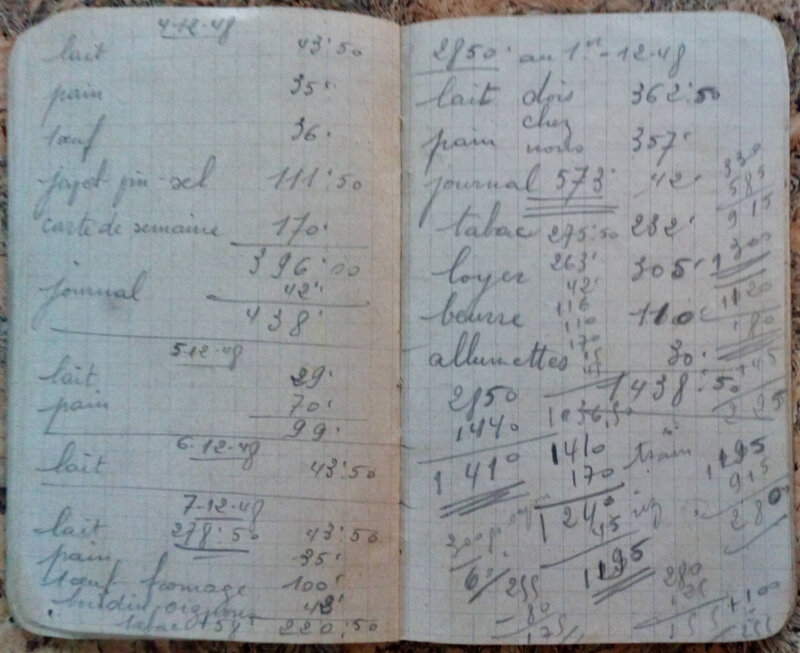 4-12-48
lait 43'50
pain 35'
1 œuf 36'
111'50
carte de semaine 170'
396'00
journal 42'
438'
5-12-48
lait 29'
pain 70'
99'
6-12-48
lait 43'50
7-12-48
lait 278'50 43'50
pain 35'
1 œuf fromage 100'
boudin oignons 42'
tabac 220'50
2850' au 1er-12-48
lait dois 362'50
pain chez nous 357'
journal 573' 42'
tabac 275'50 232'
loyer 263' 305'
42'
beurre 116 110'
110
170
allumettes 30'
2850 1438'50
1440 1036,50
1410 1410 train 1195
170 915
1240 280
45
1195
60'
255 280
80 125
175 155 + 100
255
330
585
915
1300
1120
180
145
225